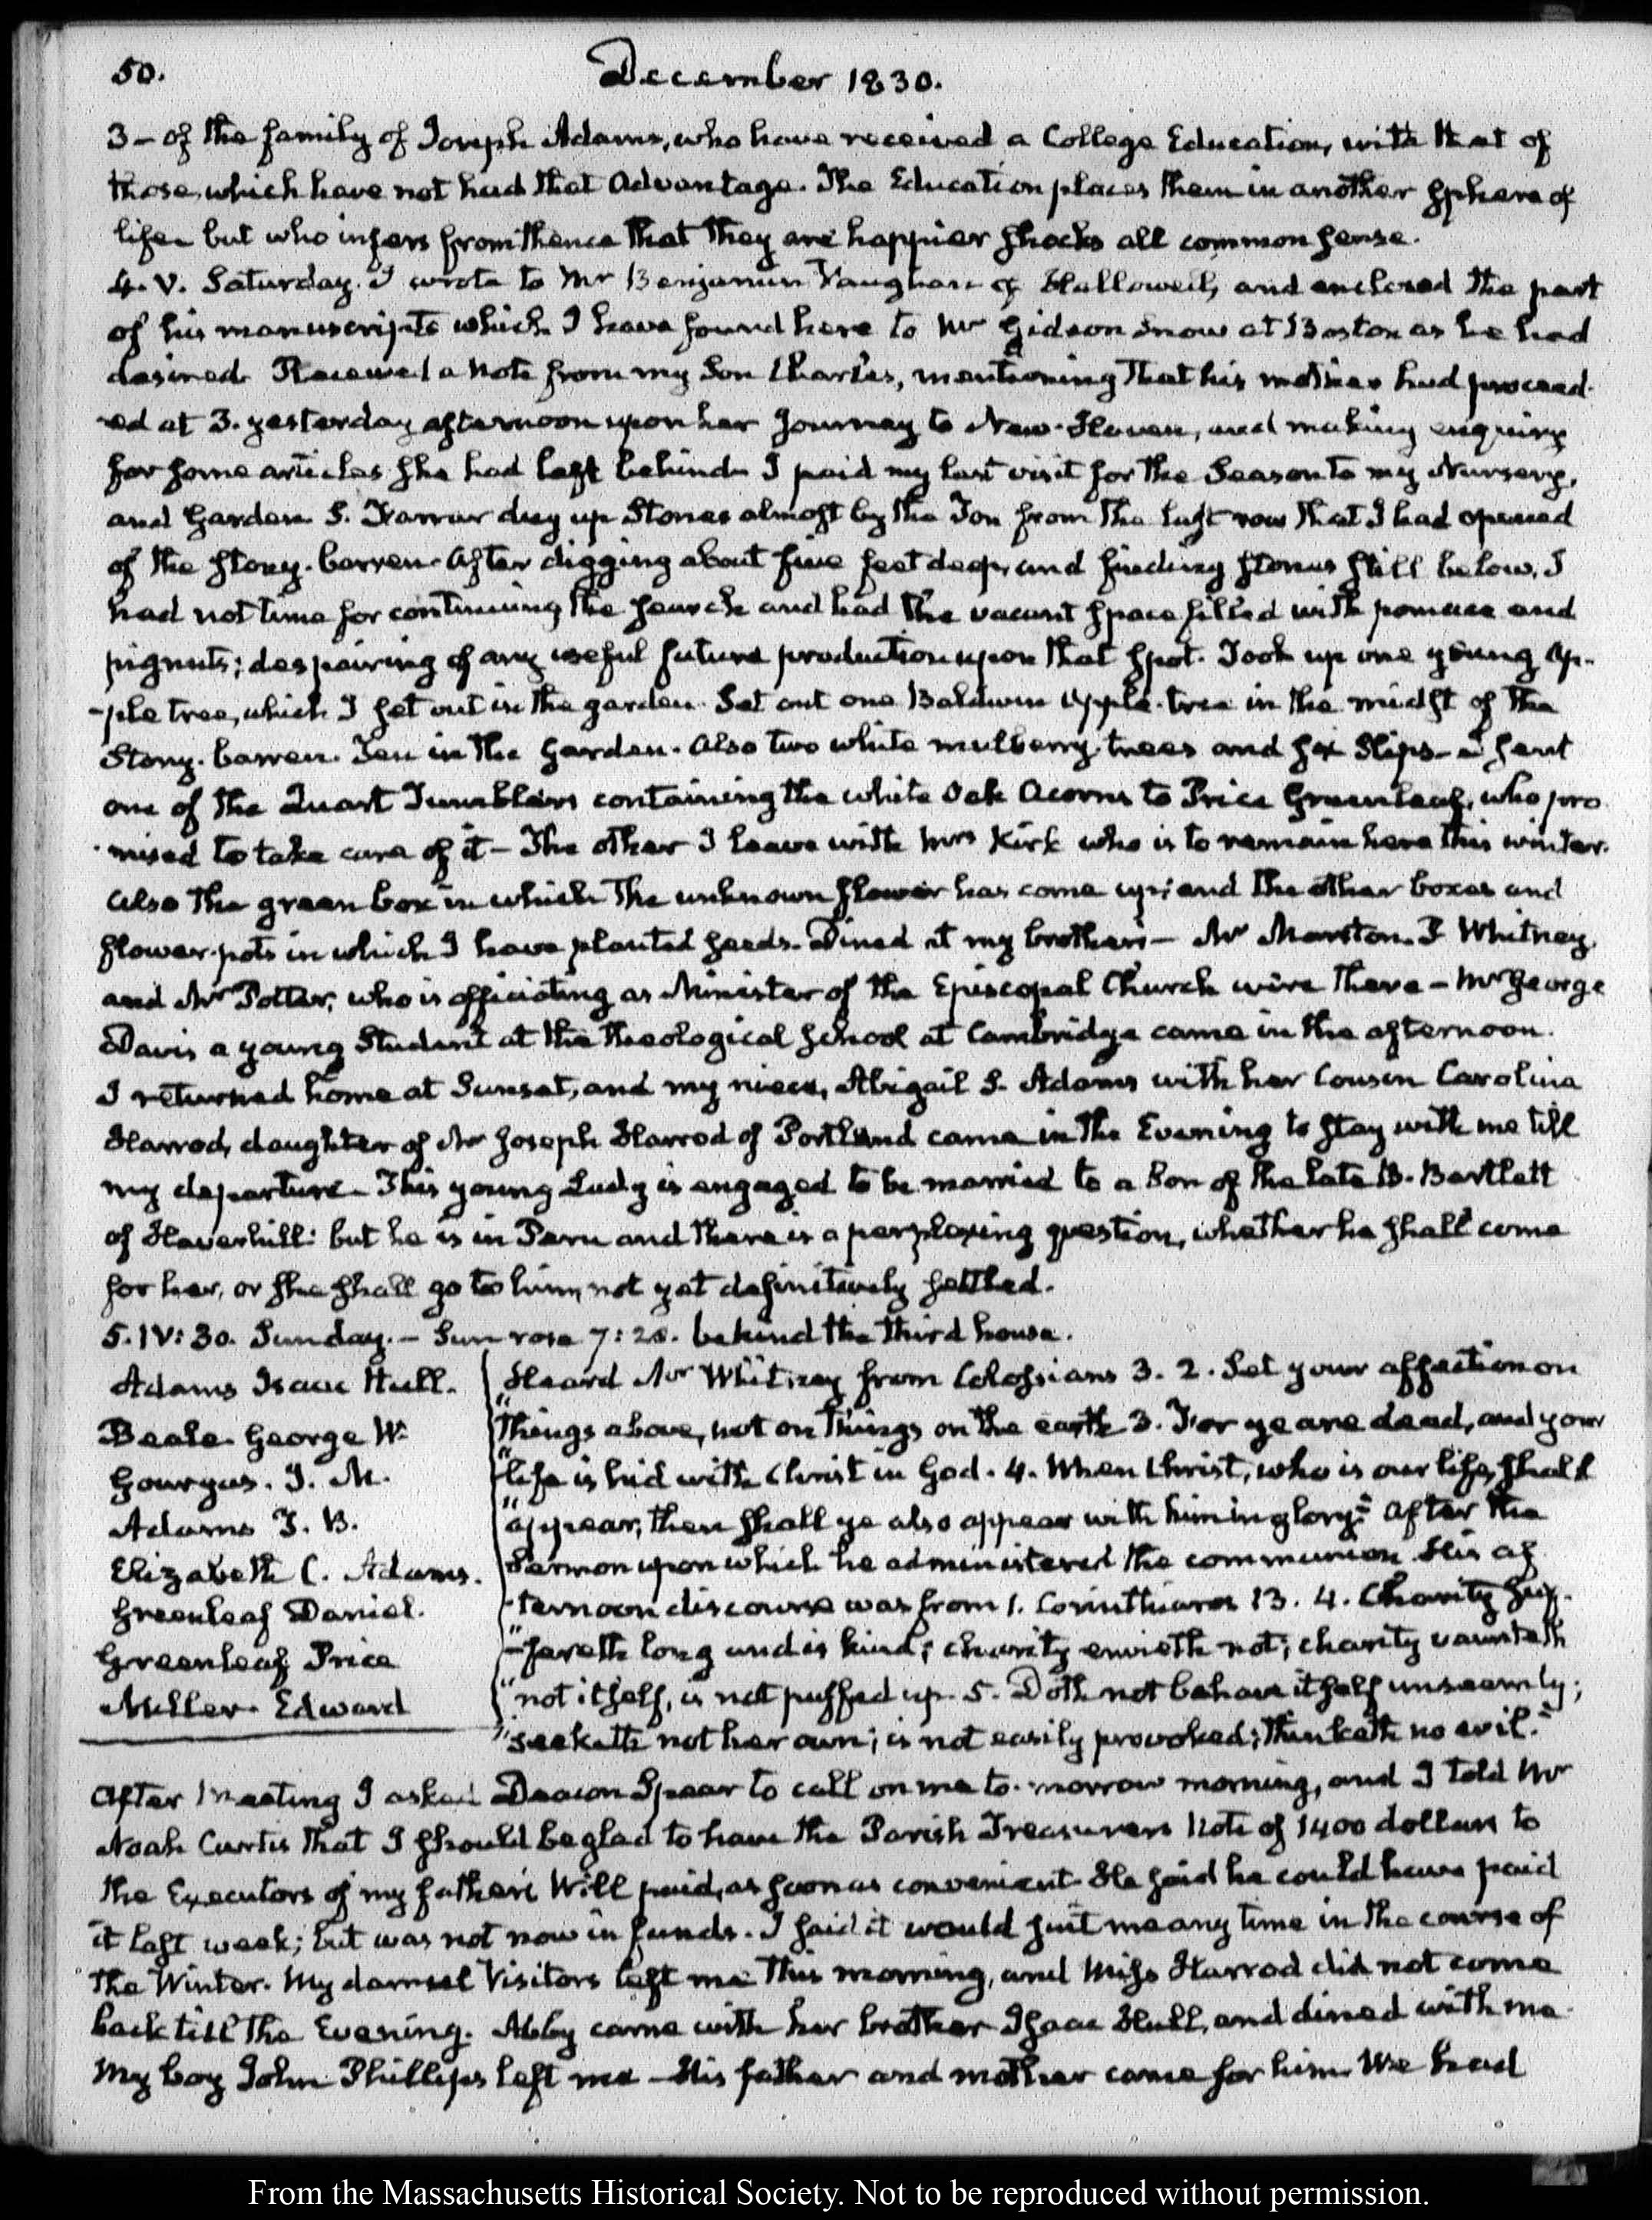 50.
December 1830.
3 – of the family of Joseph Adams, who have received a College Education, with that of
those, which have not had that advantage. The Education places them in another Sphere of
life – but who infers from thence that they are happier shocks all common sense.
4. V. Saturday. I wrote to Mr Benjamin Vaughan of Hallowell, and enclosed the part
of his manuscripts which I have found here to Mr Gideon Snow at Boston as he had
desired. Received a Note from my Son Charles, mentioning that his mother had proceed-
-ed at 3. yesterday afternoon upon her Journey to New-Haven, and making enquiry
for some articles she had left behind. I paid my last visit for the Season to my Nursery,
and Garden. S. Farrar dug up Stones almost by the Ton from the last row that I had opened
of the stony-barren. After digging about five feet deep, and finding stones still below, I
had not time for continuing the search and had the vacant space filled with pomace and
pignuts; despairing of any useful future production upon that spot. Took up one young ap-
-ple tree, which I set out in the garden. Set out one Baldwin Apple-tree in the midst of the
Stony-barren. Ten in the Garden. Also two white mulberry-trees and six Slips – I sent
one of the Quart Tumblers containing the white Oak Acorns to Price Greenleaf, who pro-
-mised to take care of it – The other I leave with Mrs Kirk who is to remain here this winter.
Also the green box in which the unknown flower has come up; and the other boxes and
flower-pots in which I have planted seeds. Dined at my brother's – Mr Marston. F Whitney,
and Mr Potter, who is officiating as Minister of the Episcopal Church were there – Mr George
Davis a young Student at the Theological School at Cambridge came in the afternoon.
I returned home at Sunset, and my niece, Abigail S. Adams with her Cousin Carolina
Harrod, daughter of Mr Joseph Harrod of Portland came in the Evening to stay with me till
my departure – This young Lady is engaged to be married to a Son of the late B. Bartlett
of Haverhill: but he is in Peru and there is a perplexing question, whether he shall come
for her, or she shall go to him, not yet definitively settled.
5. IV:30. Sunday. – Sun rose 7:28. behind the third house.
Adams Isaac Hull.
Beale. George W.
Gourgas. J. M.
Adams T. B.
Elizabeth C. Adams.
Greenleaf Daniel.
Greenleaf Price
Miller. Edward
Heard Mr Whitney from Colossians 3. 2. Set your affection on
"things above, not on things on the earth 3. For ye are dead, and your
"life is hid with Christ in God. 4. When Christ, who is our life, shall
"appear, then shall ye also appear with him in glory." After the
Sermon upon which he administered the communion. His af-
-ternoon discourse was from 1. Corinthians 13. 4. Charity suf-
"-fereth long and is kind; charity envieth not; charity vaunteth
"not itself, is not puffed up. 5. Doth not behave itself unseemly;
"seeketh not her own; is not easily provoked; thinketh no evil."
After Meeting I asked Deacon Spear to call on me to-morrow morning, and I told Mr
Noah Curtis that I should be glad to have the Parish Treasurer's Note of 1400 dollars to
the Executors of my father's Will paid, as soon as convenient. He said he could have paid
it last week; but was not now in funds. I said it would suit me any time in the course of
the Winter. My damsel Visitors left me this morning, and Miss Harrod did not come
back till the Evening. Abby came with her brother Isaac Hull, and dined with me.
My boy John Phillips left me – His father and mother came for him. We had
From the Massachusetts Historical Society. Not to be reproduced without permission.